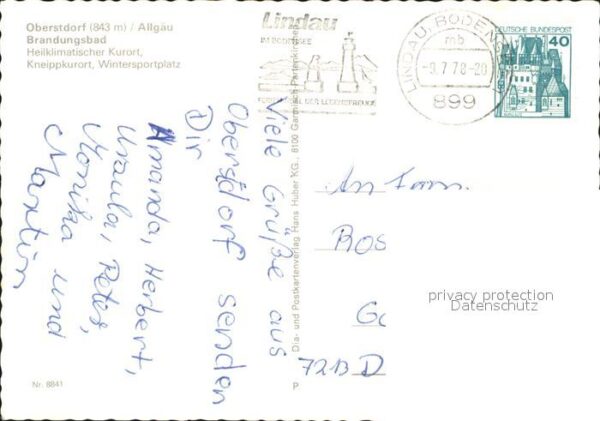 Oberstdorf (843 m) / Allgäu
Brandungsbad
Heilklimatischer Kurort,
Kneippkurort, Wintersportplatz
Lindau
IM BODENSEE
LINDAU, BODENSEE
mb
-9.7.78-20
899
DEUTSCHE BUNDESPOST
40
Viele Grüße aus
Oberstdorf senden
Dir
Amanda, Herbert,
Ursula, Peter,
Monika und
Martin
Dia- und Postkartenverlag Hans Huber KG., 8100 Garmisch-Partenkirchen
An Fam.
Ros
G
7213 D
privacy protection
Datenschutz
Nr. 8841
P